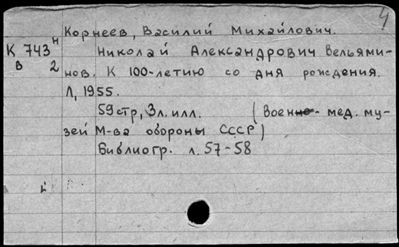 4
Корнеев, Василий Михайлович.
К 743 н
в 2
Николай Александрович Вельями-
нов. К 100-летию со дня рождения.
Л, 1955.
59 стр, 3 л. илл. (Военно- мед. му-
зей М-ва обороны СССР)
Библиогр. л. 57-58